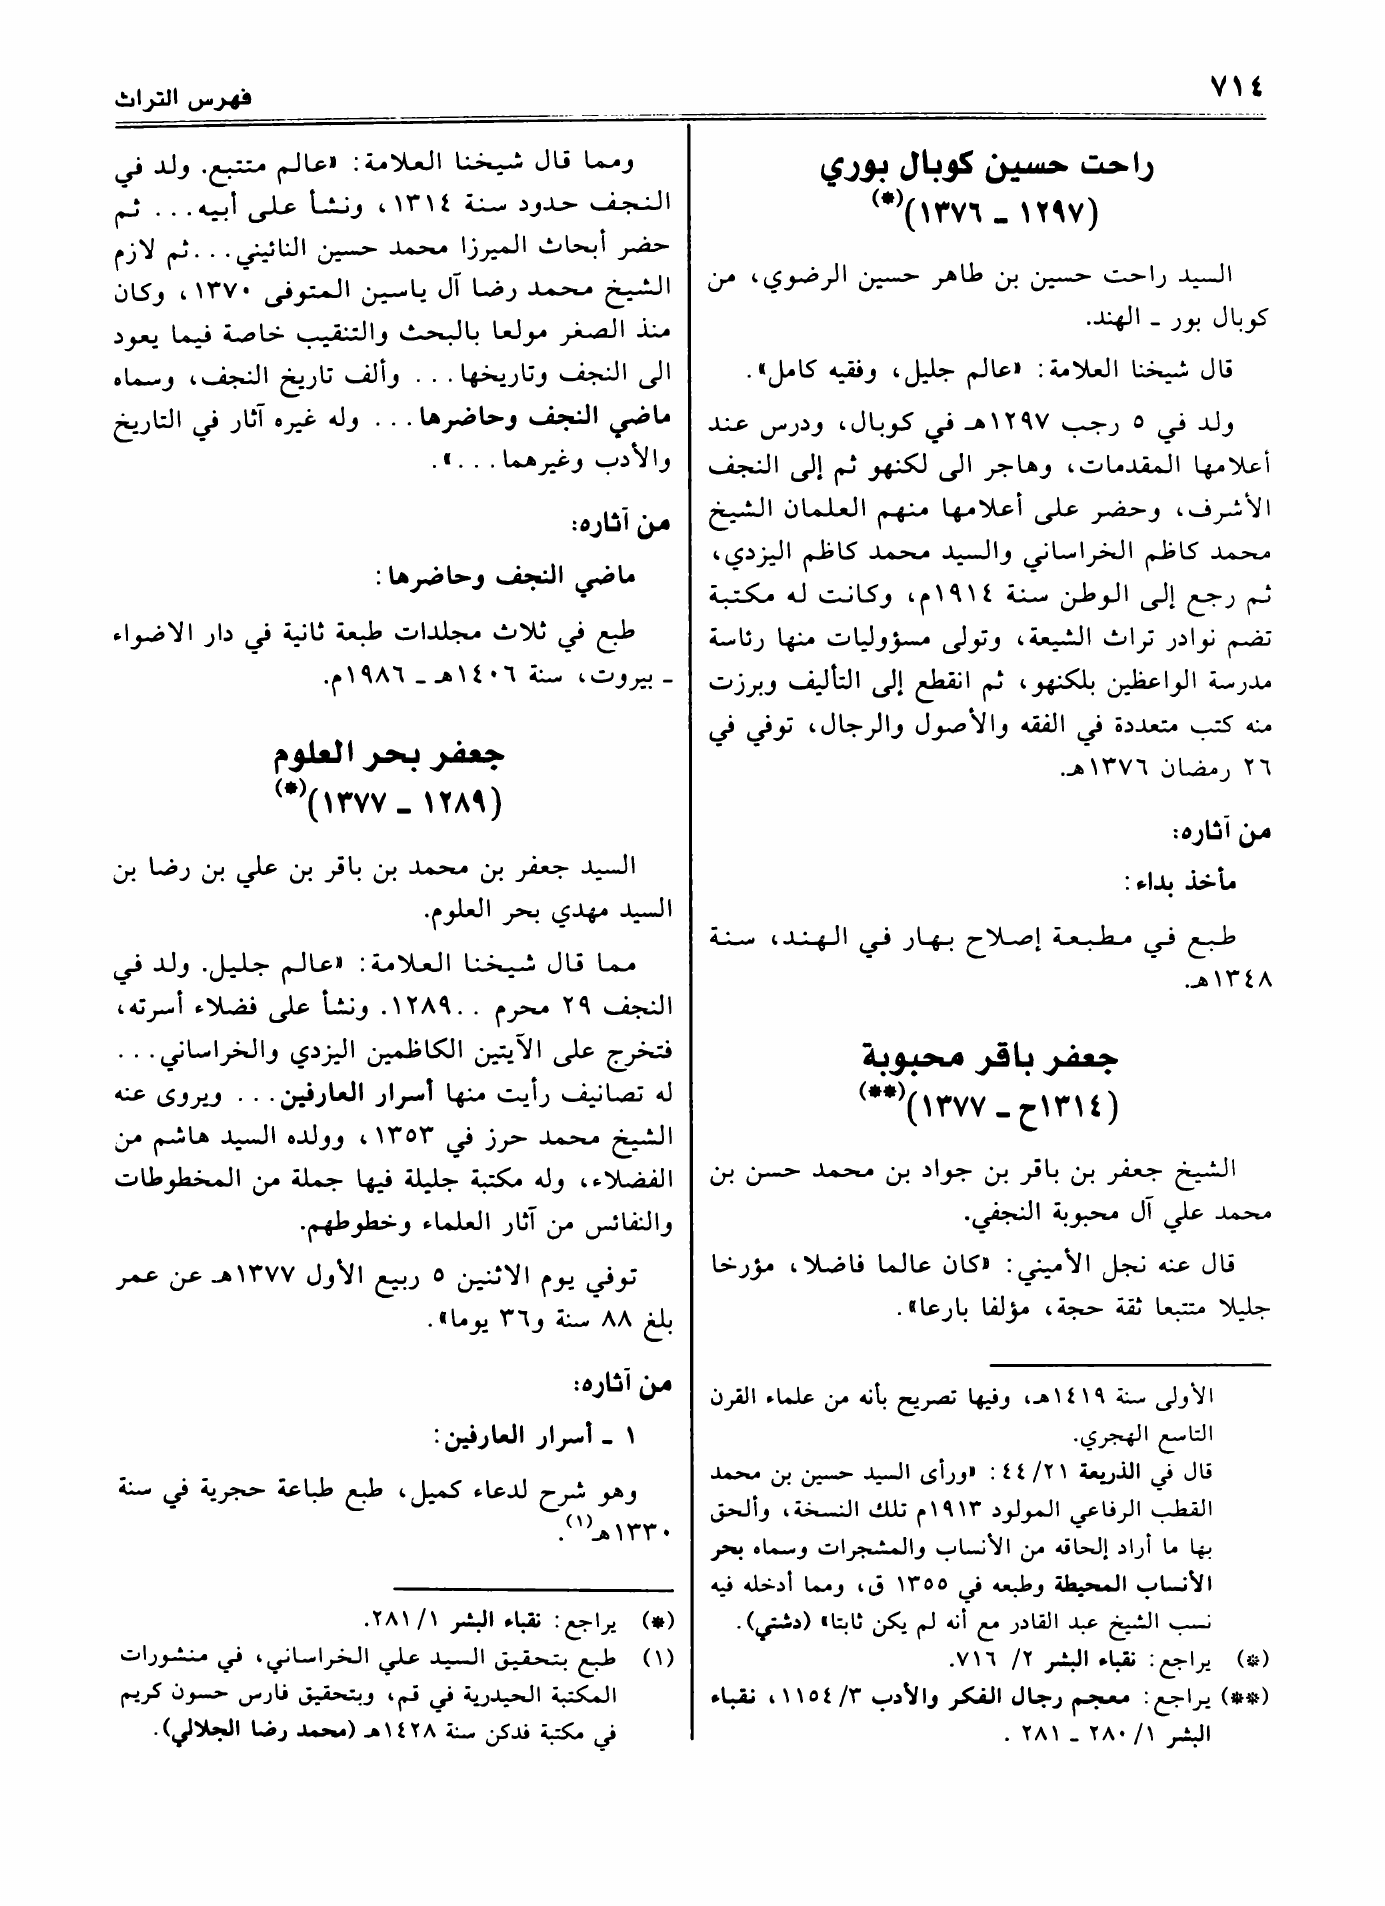 ٧١٤
فهرس التراث
راحت حسين كوبال بوري
(١٢٩٧ - ١٣٧٦)(*)
السيد راحت حسين بن طاهر حسين الرضوي، من
كوبال بور - الهند.
قال شيخنا العلامة: «عالم جليل، وفقيه كامل».
ولد في ٥ رجب ١٢٩٧هـ في كوبال، ودرس عند
أعلامها المقدمات، وهاجر الى لكنهو ثم إلى النجف
الأشرف، وحضر على أعلامها منهم العلمان الشيخ
محمد كاظم الخراساني والسيد محمد كاظم اليزدي،
ثم رجع إلى الوطن سنة ١٩١٤م، وكانت له مكتبة
تضم نوادر تراث الشيعة، وتولى مسؤوليات منها رئاسة
مدرسة الواعظين بلكنهو، ثم انقطع إلى التأليف وبرزت
منه كتب متعددة في الفقه والأصول والرجال، توفي في
٢٦ رمضان ١٣٧٦هـ.
من آثاره:
مأخذ بداء:
طبع في مطبعة إصلاح بهار في الهند، سنة
١٣٤٨هـ.
جعفر باقر محبوبة
(١٣١٤ح - ١٣٧٧)(**)
الشيخ جعفر بن باقر بن جواد بن محمد حسن بن
محمد علي آل محبوبة النجفي.
قال عنه نجل الأميني: «كان عالما فاضلا، مؤرخا
جليلا متتبعا ثقة حجة، مؤلفا بارعا».
الأولى سنة ١٤١٩هـ، وفيها تصريح بأنه من علماء القرن
التاسع الهجري.
قال في الذريعة ٢١/ ٤٤: «ورأى السيد حسين بن محمد
القطب الرفاعي المولود ١٩١٣م تلك النسخة، وألحق
بها ما أراد إلحاقه من الأنساب والمشجرات وسماه بحر
الأنساب المحيطة وطبعه في ١٣٥٥ ق، ومما أدخله فيه
نسب الشيخ عبد القادر مع أنه لم يكن ثابتا» (دشتي).
(*) يراجع: نقباء البشر ٢/ ٧١٦.
(**) يراجع: معجم رجال الفكر والأدب ٣/ ١١٥٤، نقباء
البشر ١/ ٢٨٠ - ٢٨١ .
ومما قال شيخنا العلامة: «عالم متتبع. ولد في
النجف حدود سنة ١٣١٤، ونشأ على أبيه... ثم
حضر أبحاث الميرزا محمد حسين النائيني...ثم لازم
الشيخ محمد رضا آل ياسين المتوفى ١٣٧٠، وكان
منذ الصغر مولعا بالبحث والتنقيب خاصة فيما يعود
الى النجف وتاريخها... وألف تاريخ النجف، وسماه
ماضي النجف وحاضرها... وله غيره آثار في التاريخ
والأدب وغيرهما...».
من آثاره:
ماضي النجف وحاضرها:
طبع في ثلاث مجلدات طبعة ثانية في دار الاضواء
- بيروت، سنة ١٤٠٦هـ - ١٩٨٦م.
جعفر بحر العلوم
(١٢٨٩ - ١٣٧٧)(*)
السيد جعفر بن محمد بن باقر بن علي بن رضا بن
السيد مهدي بحر العلوم.
مما قال شيخنا العلامة: «عالم جليل. ولد في
النجف ٢٩ محرم ..١٢٨٩. ونشأ على فضلاء أسرته،
فتخرج على الآيتين الكاظمين اليزدي والخراساني...
له تصانيف رأيت منها أسرار العارفين... ويروى عنه
الشيخ محمد حرز في ١٣٥٣، وولده السيد هاشم من
الفضلاء، وله مكتبة جليلة فيها جملة من المخطوطات
والنفائس من آثار العلماء وخطوطهم.
توفي يوم الاثنين ٥ ربيع الأول ١٣٧٧هـ عن عمر
بلغ ٨٨ سنة و٣٦ يوما».
من آثاره:
١ - أسرار العارفين:
وهو شرح لدعاء كميل، طبع طباعة حجرية في سنة
١٣٣٠هـ(١).
(*) يراجع: نقباء البشر ١/ ٢٨١.
(١) طبع بتحقيق السيد علي الخراساني، في منشورات
المكتبة الحيدرية في قم، وبتحقيق فارس حسون كريم
في مكتبة فدكن سنة ١٤٢٨هـ (محمد رضا الجلالي).